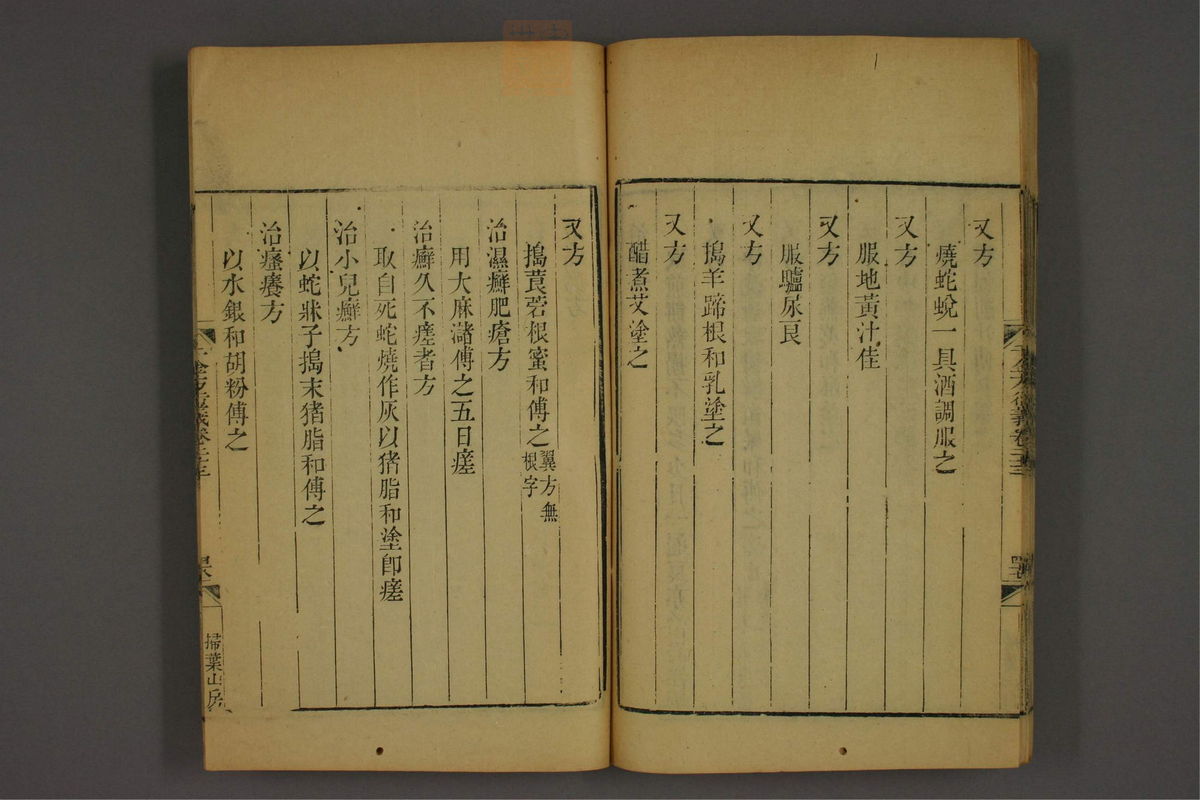 又方
燒蛇蛻一具酒調服之
又方
服地黃汁佳
又方
服驢尿良
又方
搗羊蹄根和乳塗之
又方
醋煮艾塗之
又方
搗莨菪根蜜和傅之翼方無根字
治濕癬肥瘡方
用大麻㵖傅之五日瘥
治癬久不瘥者方
取自死蛇燒作灰以猪脂和塗卽瘥
治小兒癬方
以蛇牀子搗末猪脂和傅之
治瘙癢方
以水銀和胡粉傅之
掃葉山房